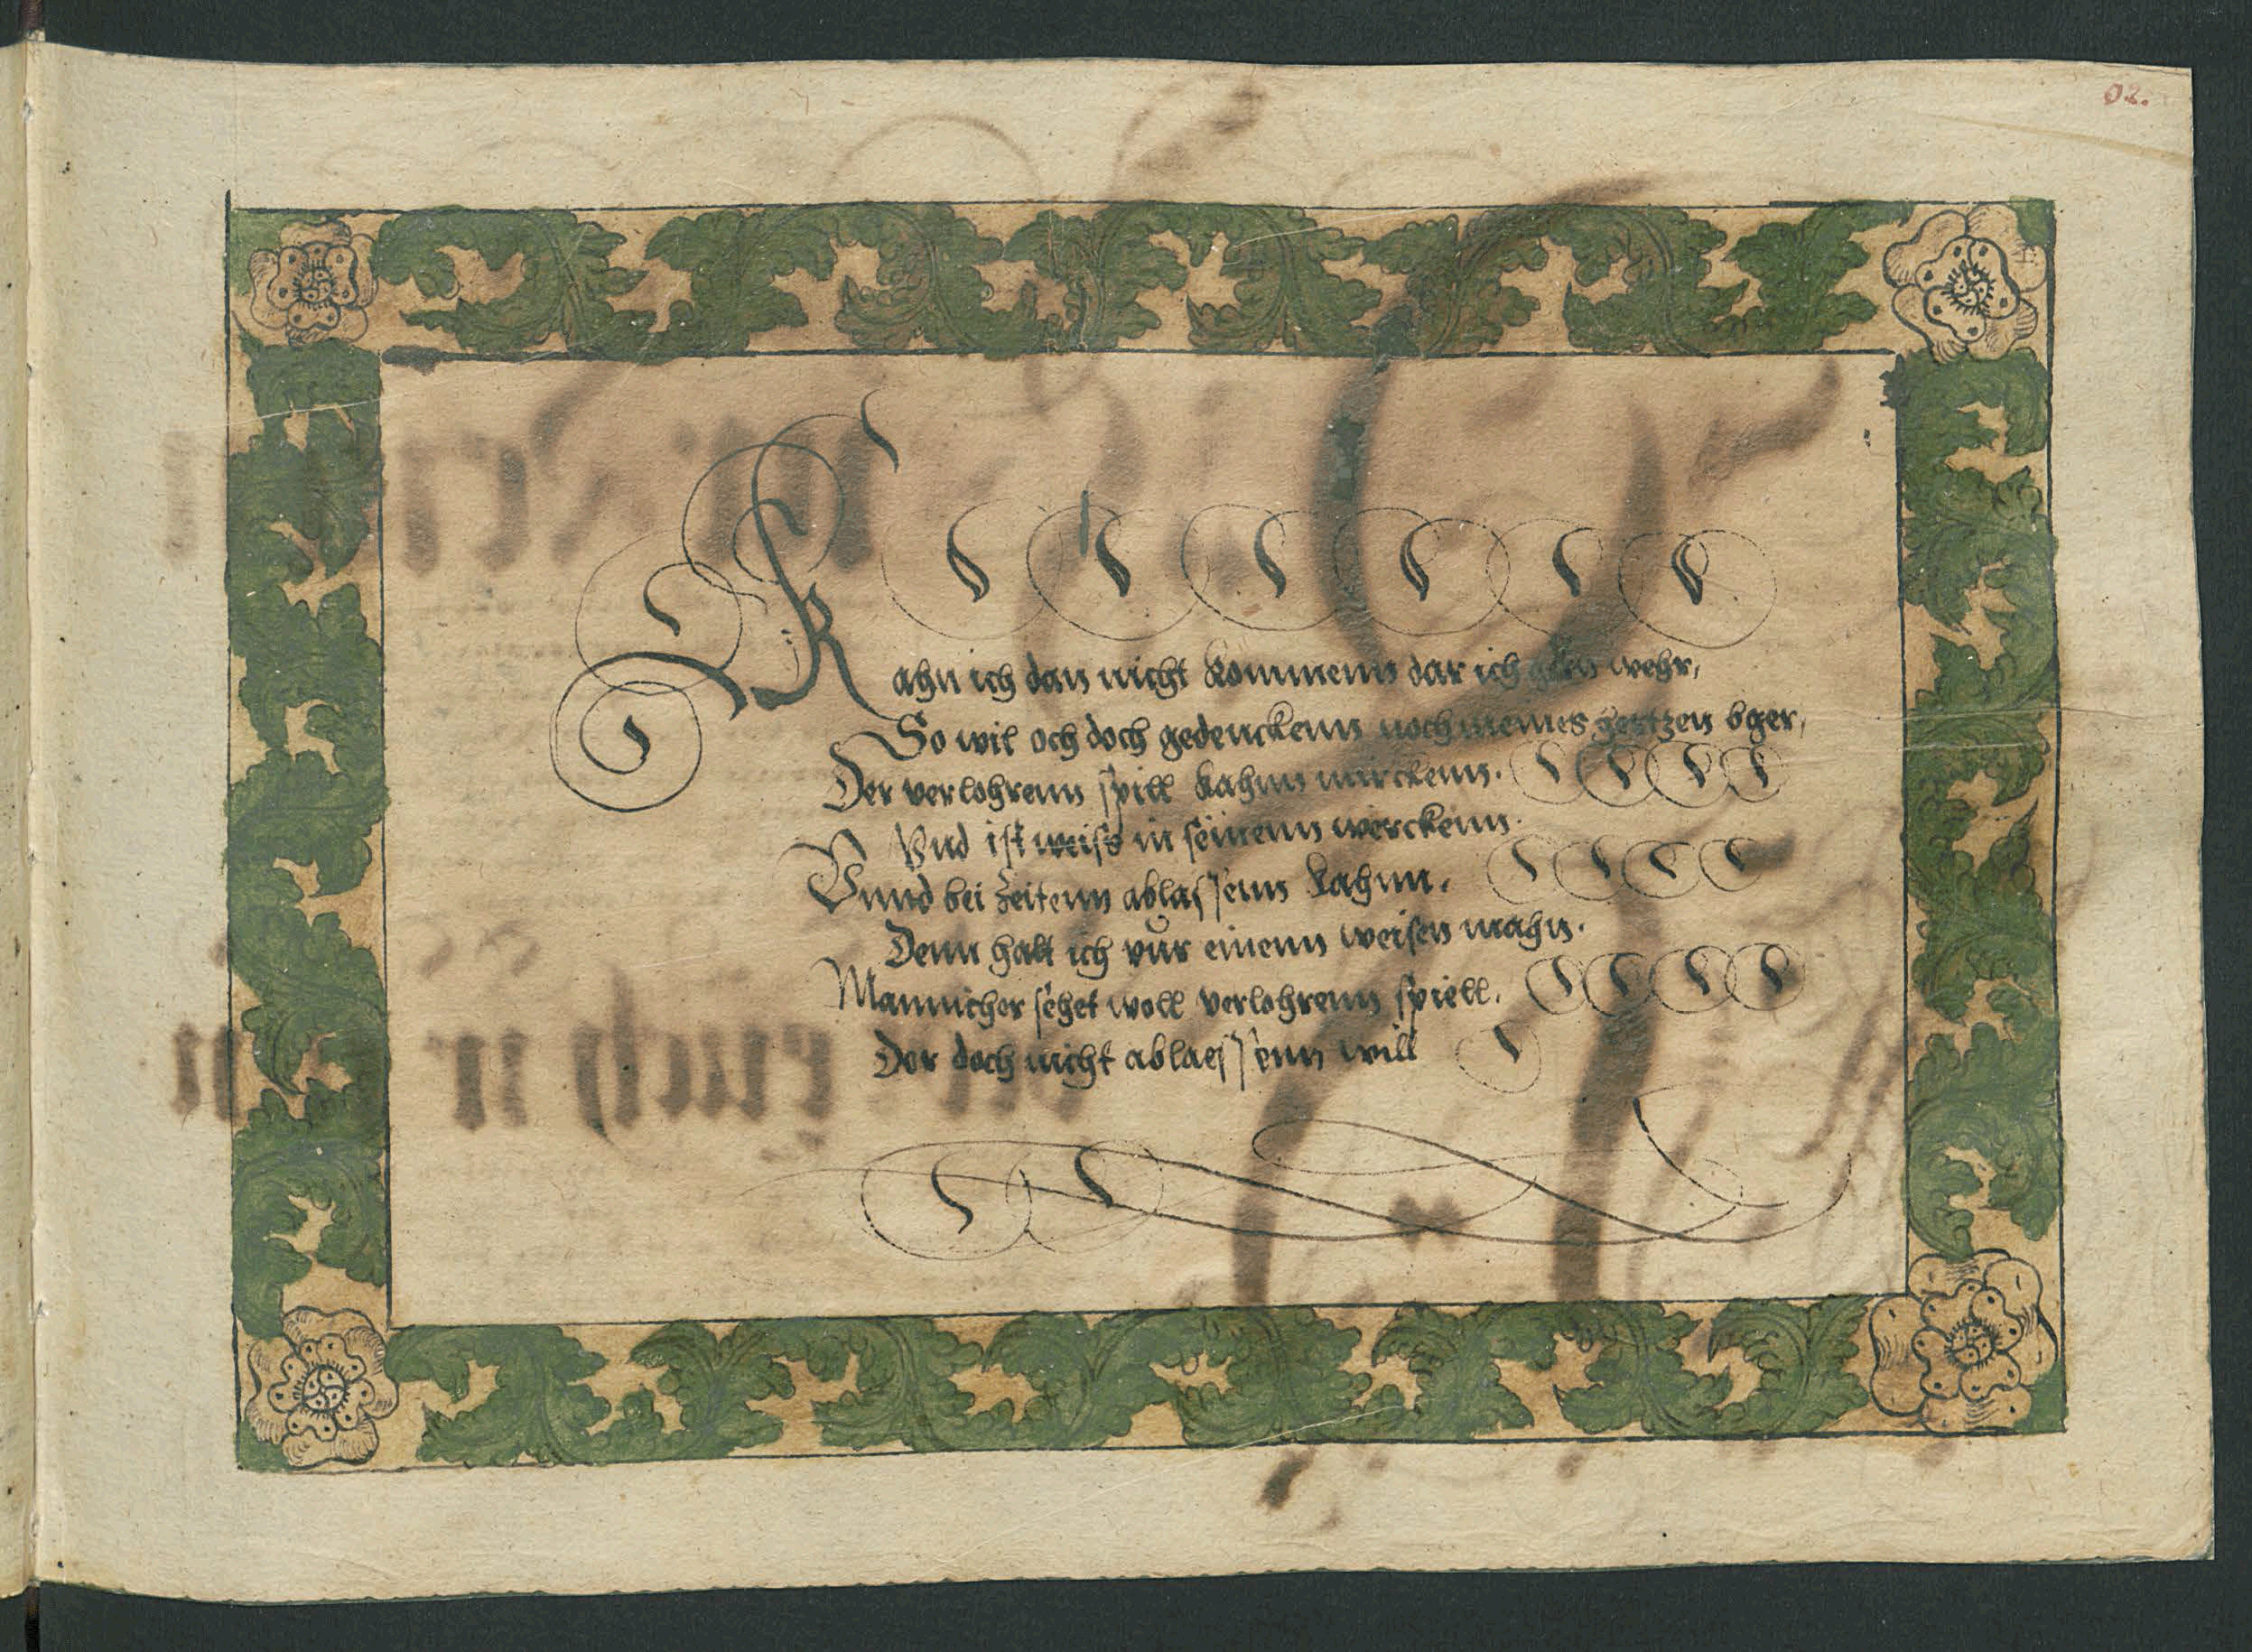 02.
Kahn ich dan nicht kommenn dar ich gern wehr,
So wil och doch gedenckenn noch meines hertzen bger,
Der verlohrenn spill kahnn mirckenn.
Vnd ist weiss in seinenn werckenn.
Vnnd bei Zeitenn ablassenn kahnn.
Denn halt ich vur einenn weisen mahn.
Mannicher sehet woll verlohrenn spiell.
Der doch nicht ablaessenn will